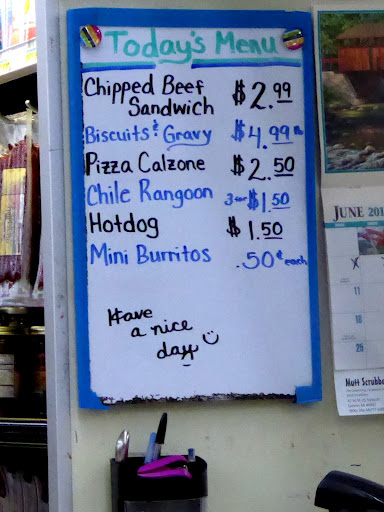 Today's Menu
Chipped Beef $2.99
Sandwich
Biscuits & Gravy $4.99 lb
Pizza Calzone $2.50
Chile Rangoon 3 for $1.50
Hotdog $1.50
Mini Burritos .50¢ each
Have
a nice
day
JUNE 201
4
11
18
25
Mutt Scrubb